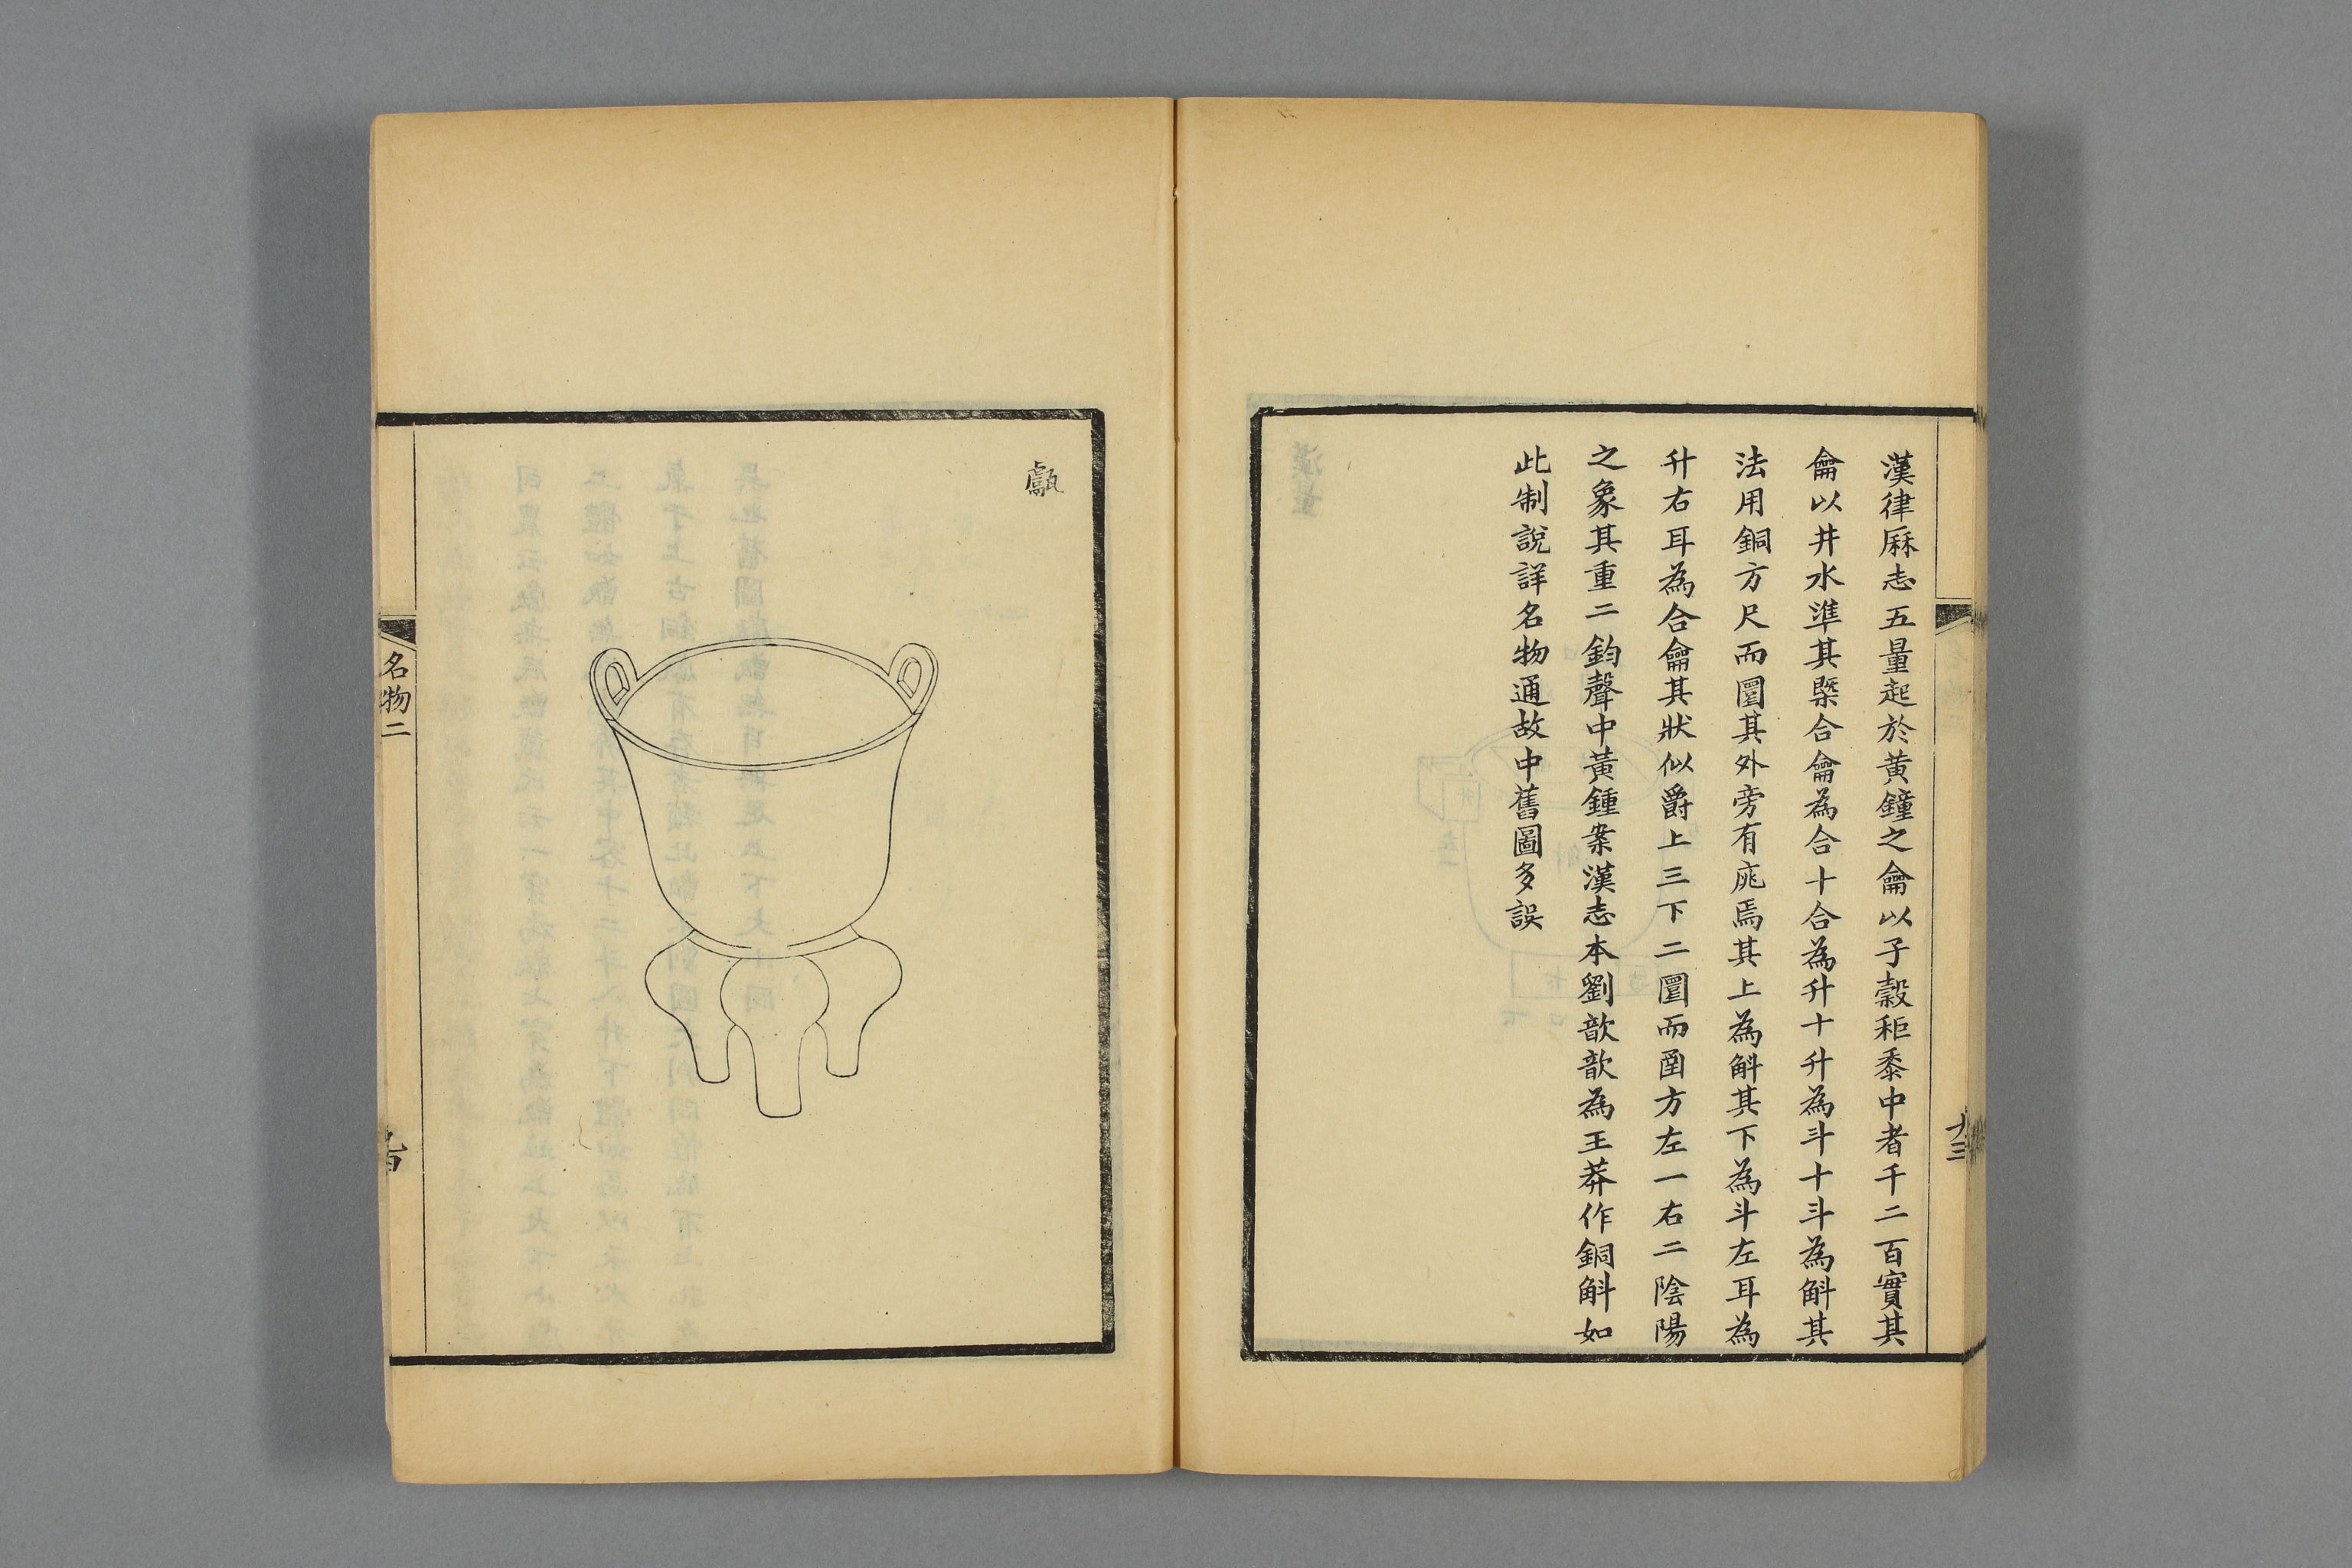 漢律厤志五量起於黄鐘之龠以子穀秬黍中者千二百實其
龠以井水準其槩合龠為合十合為升十升為斗十斗為斛其
法用銅方尺而圜其外旁有庣焉其上為斛其下為斗左耳為
升右耳為合龠其狀似爵上三下二圜而函方左一右二陰陽
之象其重二鈞聲中黃鍾案漢志本劉歆歆為王莽作銅斛如
此制説詳名物通故中舊圖多誤
甗
名物二